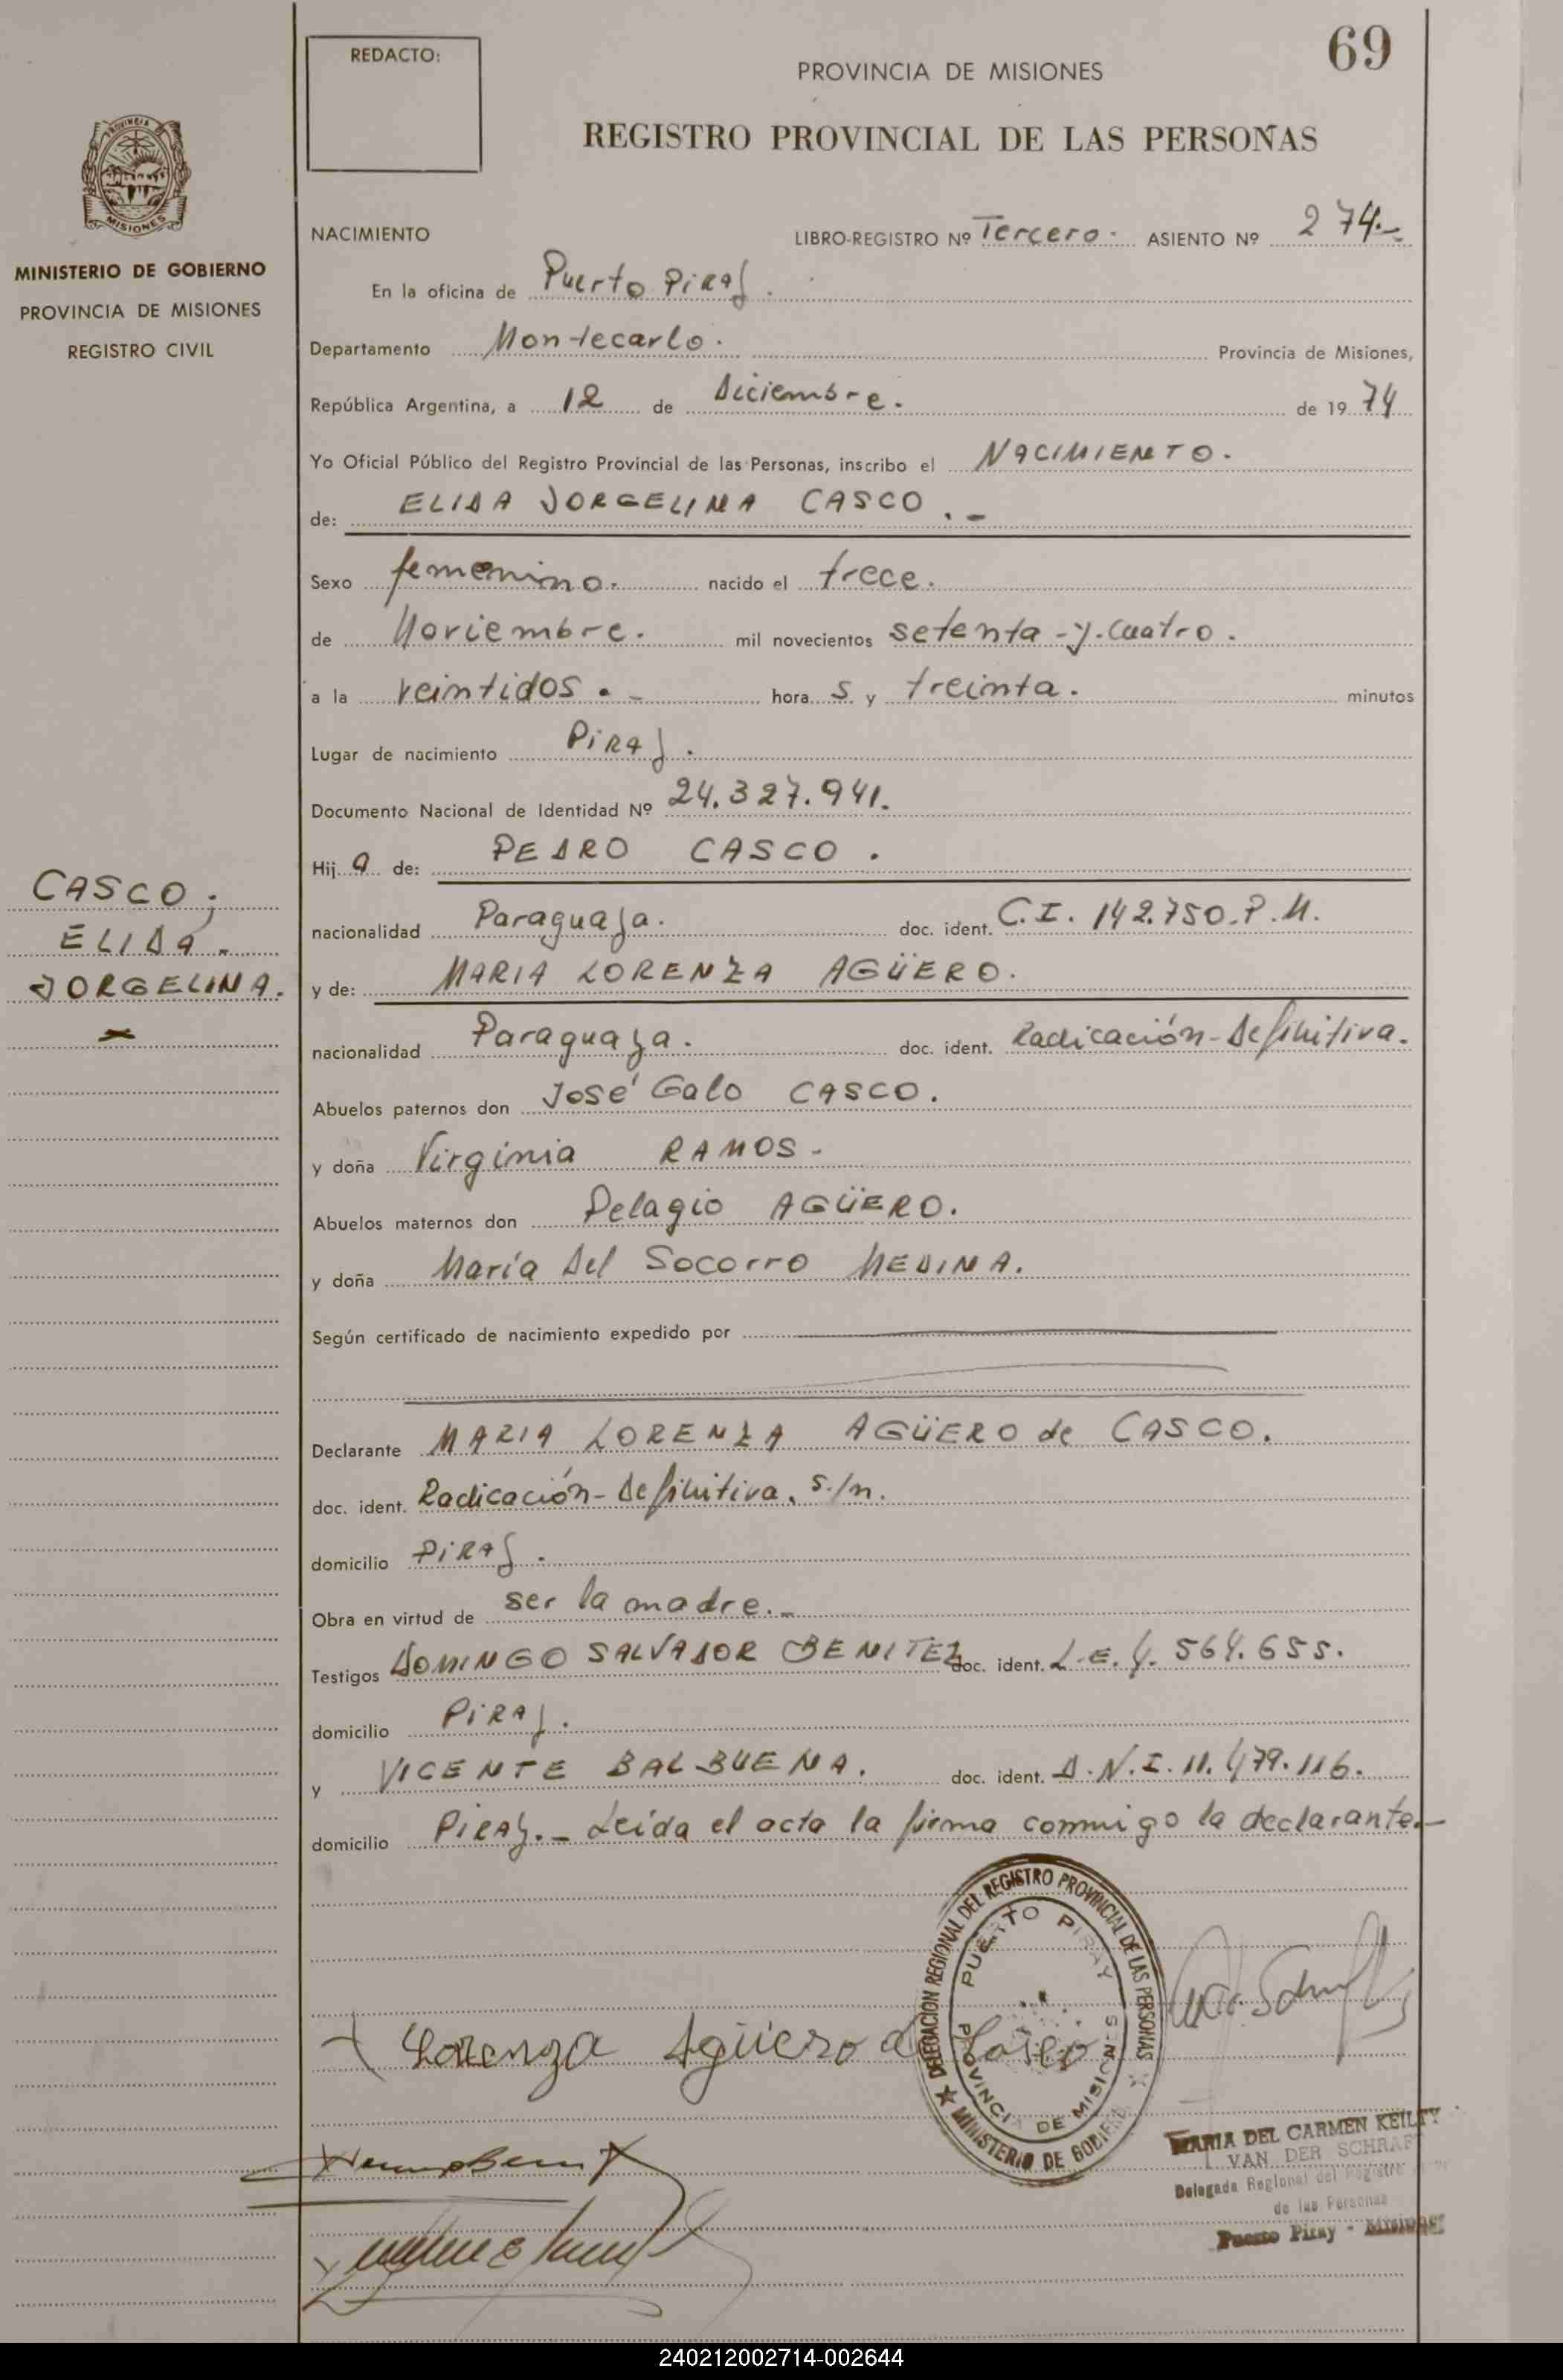 69
REDACTO:
PROVINCIA DE MISIONES
REGISTRO PROVINCIAL DE LAS PERSONAS
PROVINCIA
MISIONES
MINISTERIO DE GOBIERNO
PROVINCIA DE MISIONES
REGISTRO CIVIL
NACIMIENTO LIBRO-REGISTRO Nº Tercero. ASIENTO Nº 274.-
En la oficina de Puerto Piray.
Departamento Montecarlo. Provincia de Misiones,
República Argentina, a 12 de Diciembre. de 1974
Yo Oficial Público del Registro Provincial de las Personas, inscribo el NACIMIENTO.
de: ELIDA JORGELINA CASCO.-
Sexo femenino. nacido el trece.
de Noviembre. mil novecientos setenta-y-cuatro.
a la veintidos.- hora s y treinta. minutos
Lugar de nacimiento Piray.
Documento Nacional de Identidad Nº 24.327.941.
Hij a de: PEDRO CASCO.
CASCO;
ELIDA.
JORGELINA.
nacionalidad Paraguaya. doc. ident. C.I. 142.750.P.M.
y de: MARIA LORENZA AGÜERO.
nacionalidad Paraguaya. doc. ident. Radicación-Definitiva.
Abuelos paternos don José Galo CASCO.
y doña Virginia RAMOS-
Abuelos maternos don Pelagio AGÜERO.
y doña María Del Socorro MEDINA.
Según certificado de nacimiento expedido por
Declarante MARIA LORENZA AGÜERO de CASCO.
doc. ident. Radicación-Definitiva. s/n.
domicilio PiRAy.
Obra en virtud de ser la madre.-
Testigos DOMINGO SALVADOR BENITEZ doc. ident. L.E. 4.564.655.
domicilio PiRAy.
y VICENTE BALBUENA. doc. ident. D.N.I. 11.479.116.
domicilio PiRAy.- Leída el acta la firma conmigo la declarante.-
DELEGACION REGIONAL DEL REGISTRO PROVINCIAL DE LAS PERSONAS
MINISTERIO DE GOBIERNO
PUERTO PIRAY
PROVINCIA DE MISIONES
Lorenza Agüero de Casco
MARIA DEL CARMEN KEILTY
VAN DER SCHRAFT
Delegada Regional del Registro
de las Personas
Puerto Piray - Misiones
240212002714-002644